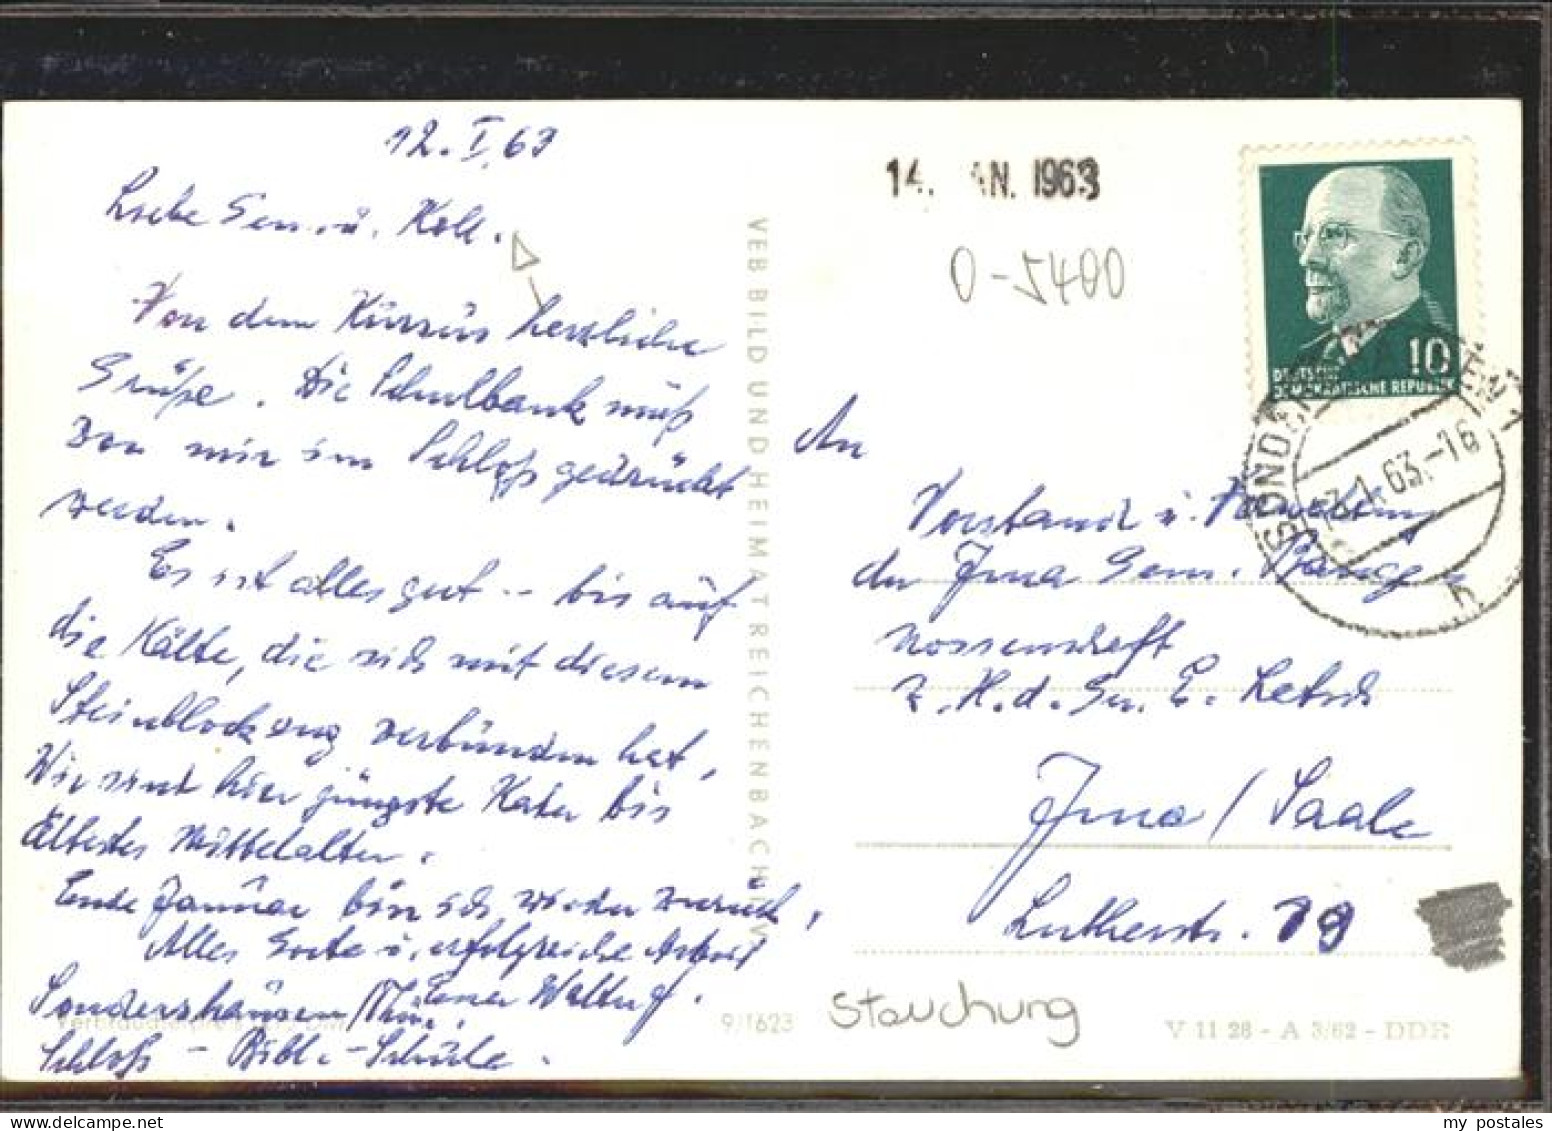 12. I. 63
Liebe Gen. u. Koll.
Von dem Kursus herzliche
Grüße. Die Schulbank muß
von mir im Schloß gedrückt
werden.
Es ist alles gut -- bis auf
die Kälte, die sich mit diesem
Steinblock eng verbunden hat,
Wir sind hier jüngste Kater bis
ältestes Mittelalter.
Ende Januar bin ich wieder zurück,
Alles Gute u. erfolgreiche Arbeit
Sondershausen/Thür.
Schloß - Bibl. - Schule.
VEB BILD UND HEIMAT REICHENBACH I. V.
Verbraucherpreis DM
9/1623
14. AN. 1963
0-5400
10
DEUTSCHE
DEMOKRATISCHE REPUBLIK
SONDER
13.1.63.-16
h
An
Vorstand u. Verwaltung
der Jena Gem. Bauge-
nossenschaft
z. H. d. Gen. E.
Jena / Saale
Lutherstr. 19
Stauchung
V 11 28 - A 3/62 - DDR
my postales